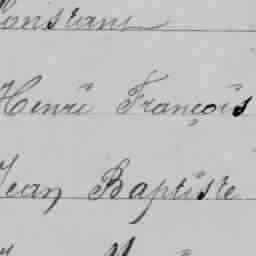 Constant
Henri François
Jean Baptiste